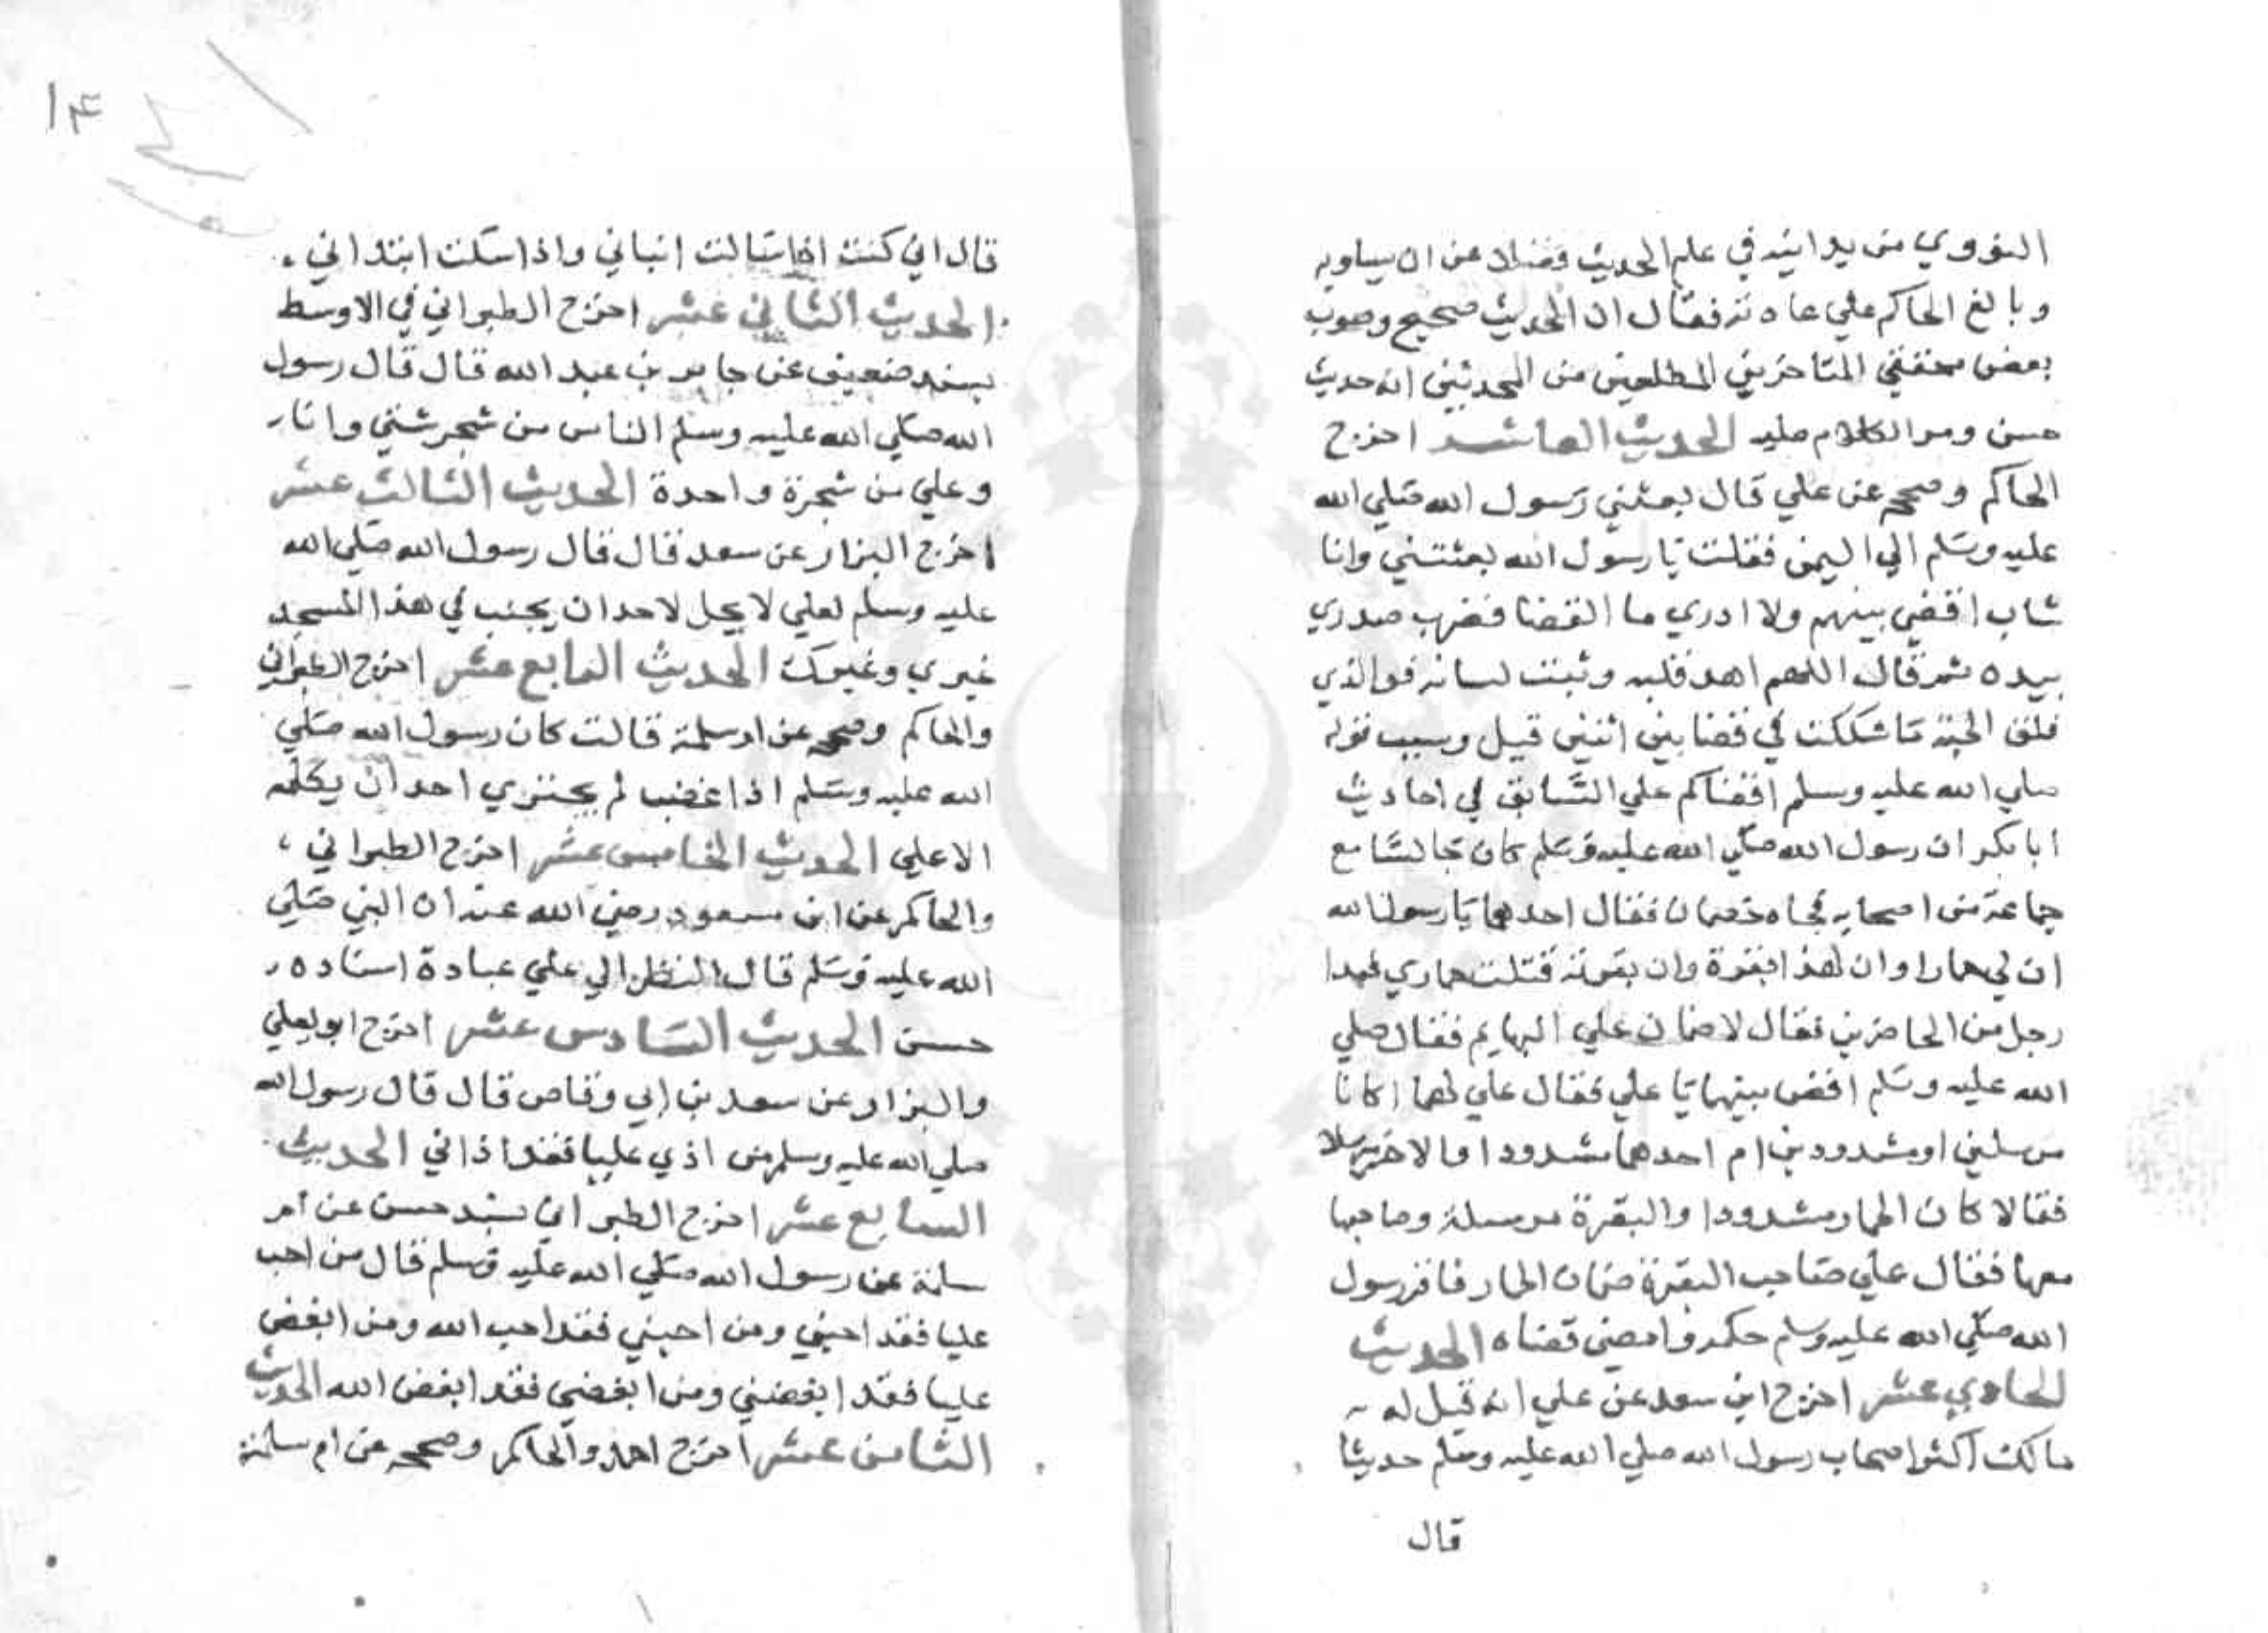 النووي من يدانيه في علم الحديث فضلا عن ان يساويه
وبالغ الحاكم علي عادته فقال ان الحديث صحيح وصوب
بعض محققي المتاخرين المطلعين من المحدثين انه حديث
حسن ومر الكلام عليه الحديث العاشر اخرج
الحاكم وصححه عن علي قال بعثني رسول الله صلي الله
عليه وسلم الي اليمن فقلت يا رسول الله بعثتني وانا
شاب اقضي بينهم ولا ادري ما القضا فضرب صدري
بيده ثم قال اللهم اهد قلبه وثبت لسانه فوالذي
فلق الحبة ما شككت في قضا بين اثنين قيل وسبب قوله
صلي الله عليه وسلم اقضاكم علي السابق في احاديث
ابا بكر ان رسول الله صلي الله عليه وسلم كان جالسا مع
جماعة من اصحابه فجاه خصمان فقال احدهما يا رسول الله
ان لي حمارا وان لهذا بقرة وان بقرته قتلت حماري فبدا
رجل من الحاضرين فقال لا ضمان علي البهايم فقال صلي
الله عليه وسلم اقض بينهما يا علي فقال علي لهما اكانا
مرسلين او مشدودين ام احدهما مشدودا والاخر مرسلا
فقالا كان الحمار مشدودا والبقرة مرسلة وصاحبها
معها فقال علي صاحب البقرة ضمان الحمار فاقر رسول
الله صلي الله عليه وسلم حكمه وامضي قضاه الحديث
الحادي عشر اخرج ابن سعد عن علي انه قيل له
مالك اكثر اصحاب رسول الله صلي الله عليه وسلم حديثا
قال
١٤
قال اني كنت اذا سالت انباني واذا سكت ابتداني
الحديث الثاني عشر اخرج الطبراني في الاوسط
بسند ضعيف عن جابر بن عبد الله قال قال رسول
الله صلي الله عليه وسلم الناس من شجر شتي وانا
وعلي من شجرة واحدة الحديث الثالث عشر
اخرج البزار عن سعد قال قال رسول الله صلي الله
عليه وسلم لعلي لا يحل لاحد ان يجنب في هذا المسجد
غيري وغيرك الحديث الرابع عشر اخرج الطبراني
والحاكم وصححه عن ام سلمة قالت كان رسول الله صلي
الله عليه وسلم اذا غضب لم يجتري احد ان يكلمه
الا علي الحديث الخامس عشر اخرج الطبراني
والحاكم عن ابن مسعود رضي الله عنه ان النبي صلي
الله عليه وسلم قال النظر الي علي عبادة اسناده
حسن الحديث السادس عشر اخرج ابو يعلي
والبزار عن سعد بن ابي وقاص قال قال رسول الله
صلي الله عليه وسلم من اذي عليا فقد اذاني الحديث
السابع عشر اخرج الطبراني بسند حسن عن ام
سلمة عن رسول الله صلي الله عليه وسلم قال من احب
عليا فقد احبني ومن احبني فقد احب الله ومن ابغض
عليا فقد ابغضني ومن ابغضني فقد ابغض الله الحديث
الثامن عشر اخرج احمد والحاكم وصححه عن ام سلمة